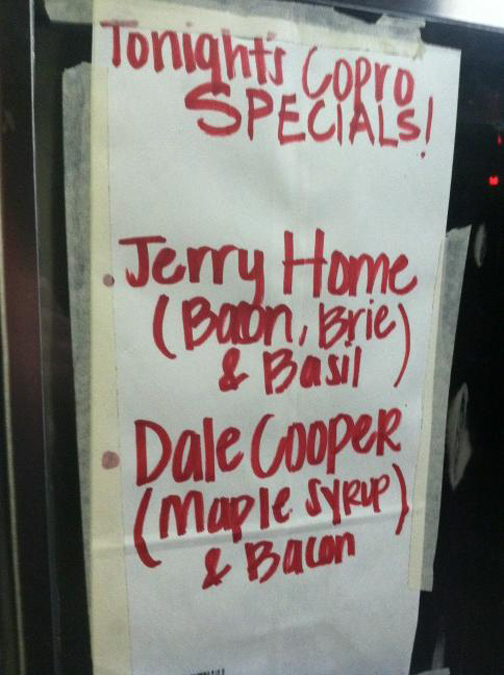 Tonight's Copro
SPECIALS!
• Jerry Home
(Bacon, Brie)
& Basil
• Dale Cooper
(Maple Syrup)
& Bacon